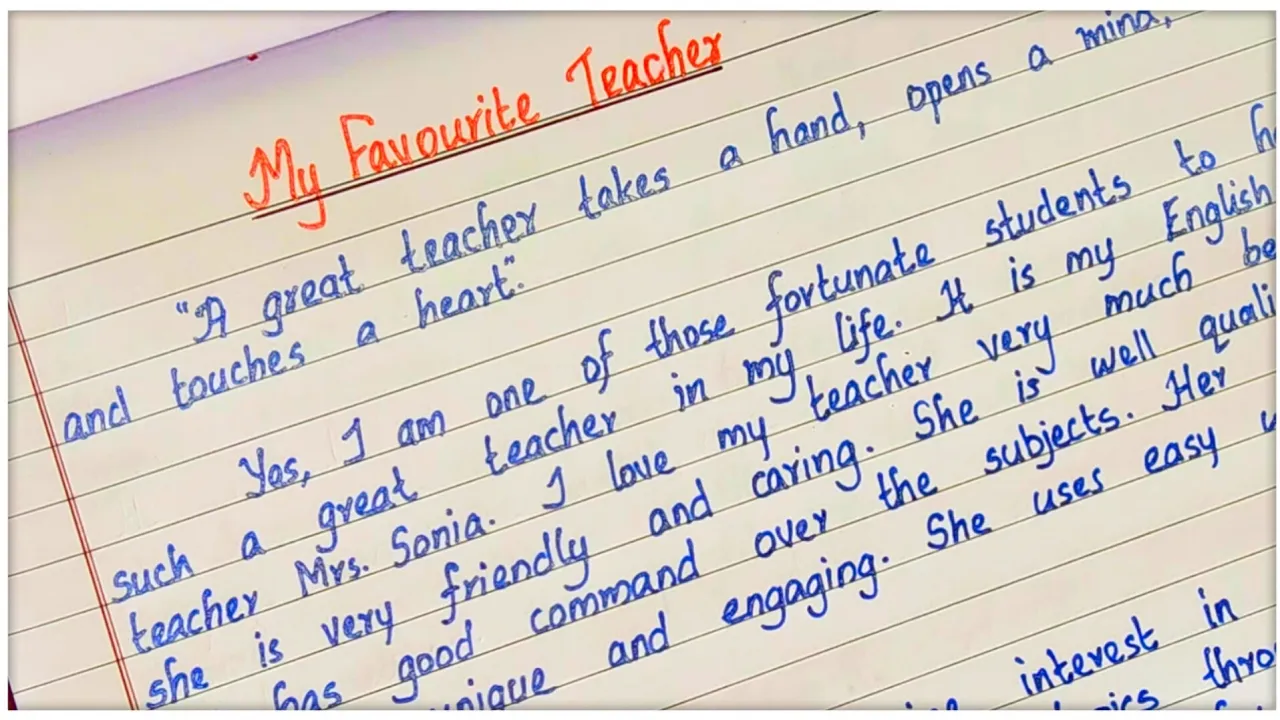 My Favourite Teacher
"A great teacher takes a hand, opens a mind,
and touches a heart."
Yes, I am one of those fortunate students to
such a great teacher in my life. It is my English
teacher Mrs. Sonia. I love my teacher very much
she is very friendly and caring. She is well
has good command over the subjects. Her
and engaging. She uses easy
interest in